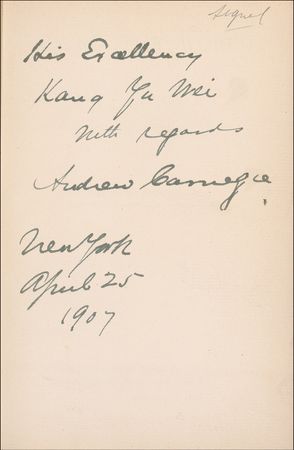 signed
His Excellency
Kang Yu Wei
with regards
Andrew Carnegie
New York
April 25
1907